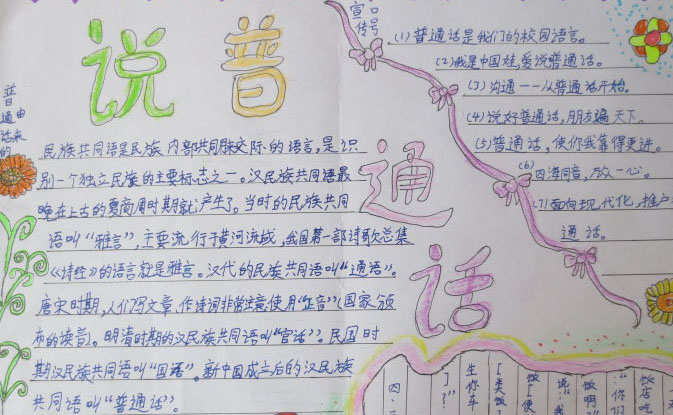 说普
通
话
普通话的
由来
民族共同语是民族内部共同交际的语言,是识
别一个独立民族的主要标志之一。汉民族共同语最
晚在上古的夏商周时期就产生了。当时的民族共同
语叫“雅言”,主要流行于黄河流域,我国第一部诗歌总集
《诗经》的语言就是雅言。汉代的民族共同语叫“通语”。
唐宋时期,人们写文章、作诗词非常注意使用“正音”(国家颁
布的读音)。明清时期的汉民族共同语叫“官话”。民国时
期汉民族共同语叫“国语”。新中国成立后的汉民族
共同语叫“普通话”。
宣传
口号
(1)普通话是我们的校园语言。
(2)我是中国娃,爱说普通话。
(3)沟通——从普通话开始。
(4)说好普通话,朋友遍天下。
(5)普通话,使你我靠得更近。
(6)四海同音,万众一心。
(7)面向现代化,推广
通话。
饭店吃
“你
饭啊
说:“我
饭[使
[类饭
生你车
]?”
四、